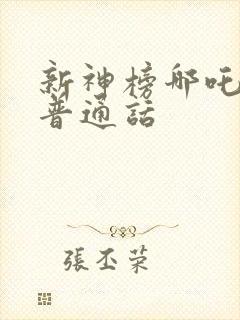 新神榜哪吒
普通話
張丕荣